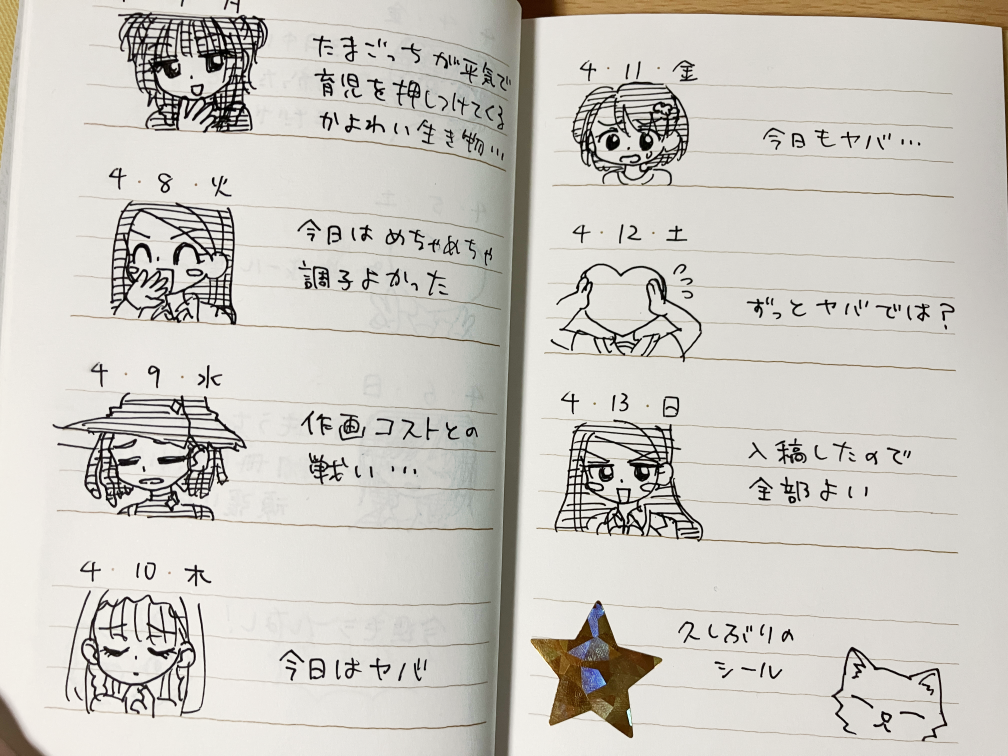 4・7・月
たまごっちが平気で
育児を押しつけてくる
かよわい生き物…
4・8・火
今日はめちゃめちゃ
調子よかった
4・9・水
作画コストとの
戦い…
4・10・木
今日はヤバ
4・11・金
今日もヤバ…
4・12・土
ずっとヤバでは?
4・13・日
入稿したので
全部よい
久しぶりの
シール